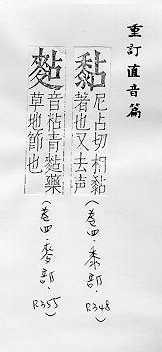 重訂直音篇
黏 尼占切相黏
著也又去声
(卷四·黍部·P.348)
音秥青藥
草地節也
(卷四·麥部·P.355)